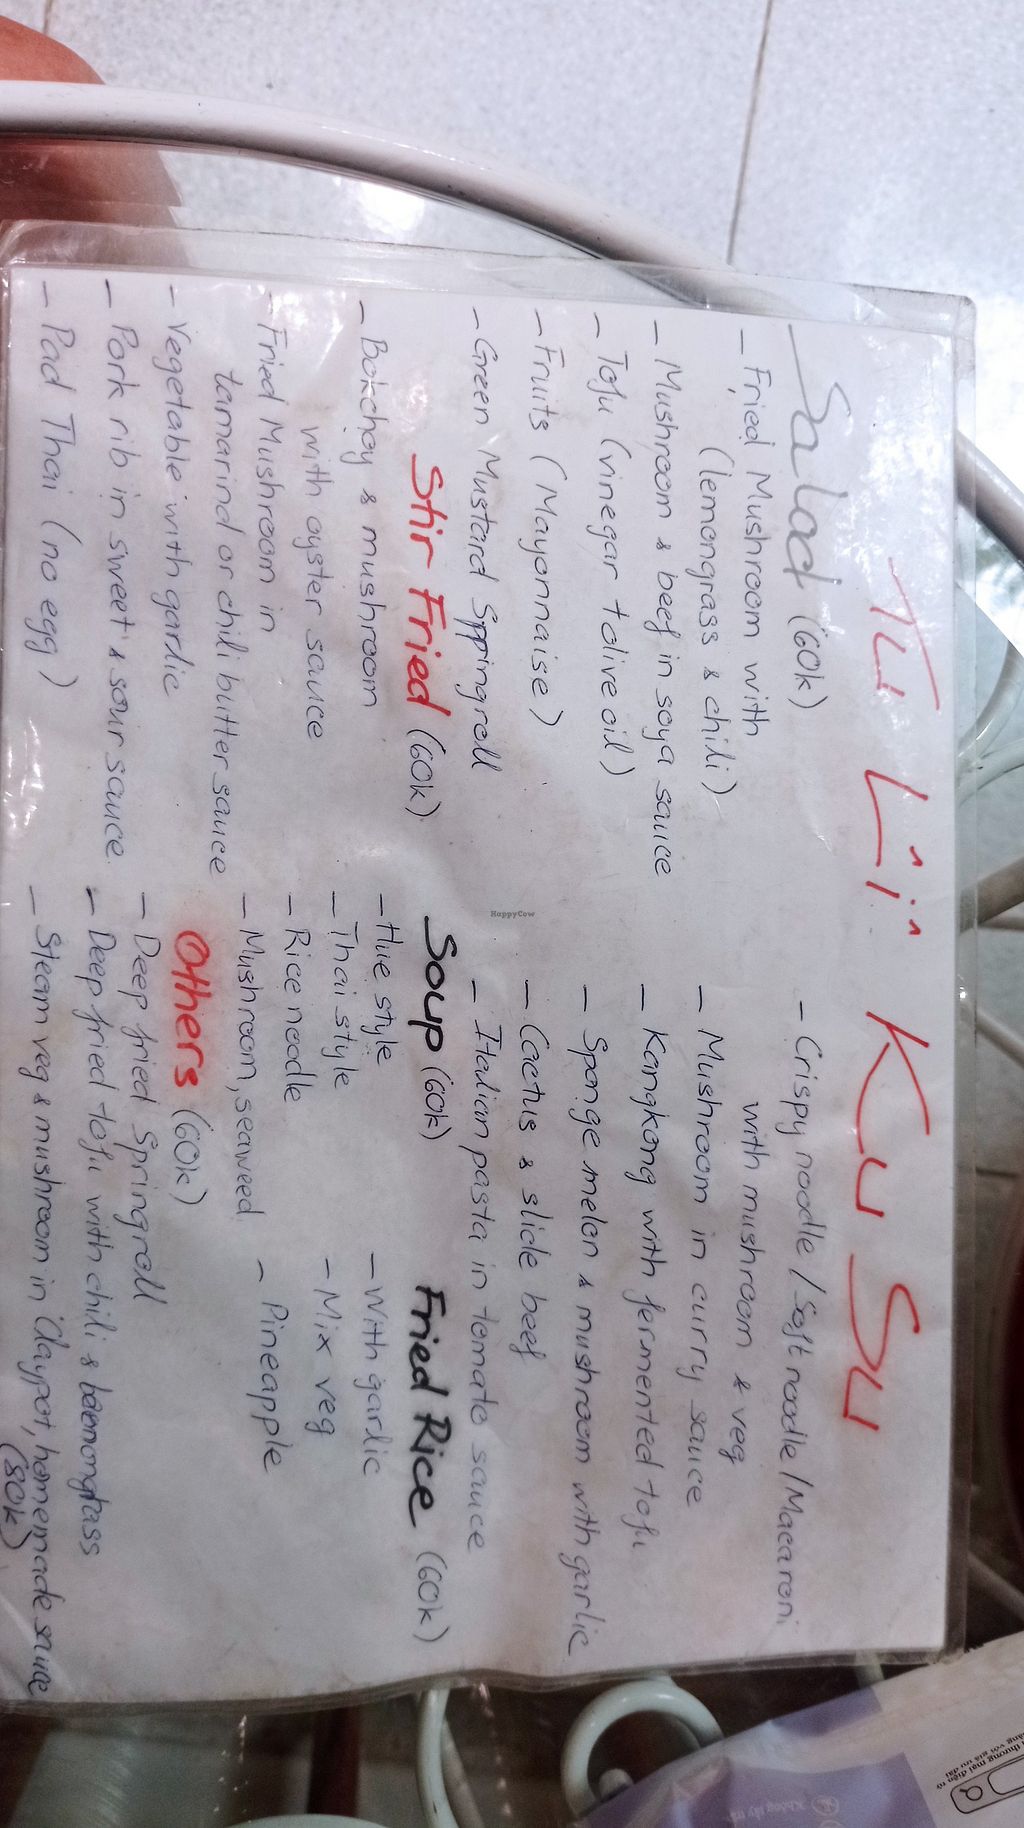 Tu Lii Ku Su
Salad (60k)
- Fried Mushroom with
(lemongrass & chili)
- Mushroom & beef in soya sauce
- Tofu (vinegar t olive oil)
- Fruits (Mayonnaise)
- Green Mustard Sppingroll
Stir Fried (60k)
- Bokchoy & mushroom
with oyster sauce
- Fried Mushroom in
tamarind or chili butter sauce
- Vegetable with garlic
- Pork rib in sweet & sour sauce
- Pad Thai (no egg)
- Crispy noodle / Soft noodle / Macaroni
with mushroom & veg
- Mushroom in curry sauce
- Kangkong with fermented tofu
- Sponge melon & mushroom with garlic
- Cactus & slide beef
- Italian pasta in tomato sauce
Soup (60k)
- Hue style
- Thai style
- Rice noodle
- Mushroom, seaweed
Fried Rice (60k)
- With garlic
- Mix veg
- Pineapple
Others (60k)
- Deep fried Springroll
- Deep fried tofu with chili & lemongrass
- Steam veg & mushroom in claypot, homemade sauce
(80k)
HappyCow